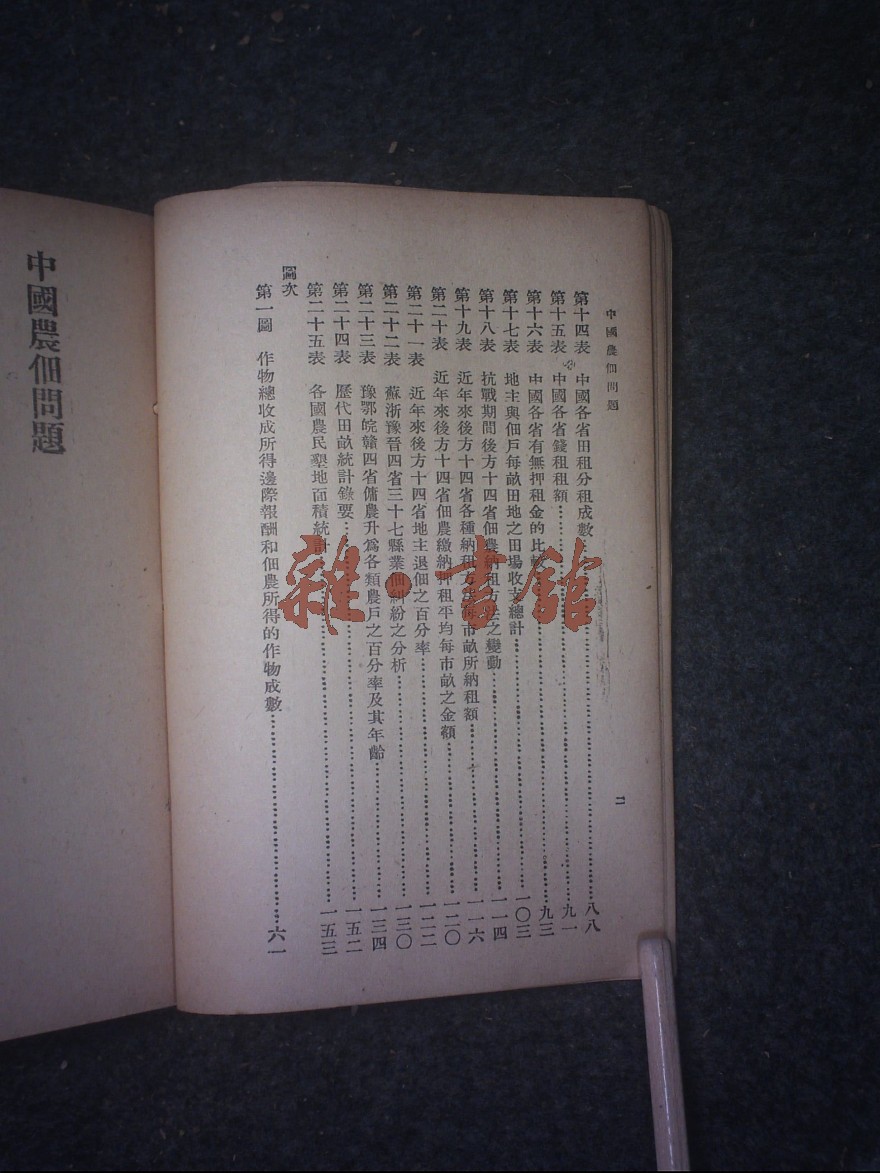 中國農佃問題
二
第十四表 中國各省田租分租成數……八八
第十五表 中國各省錢租租額……九一
第十六表 中國各省有無押租金的比較……九三
第十七表 地主與佃戶每畝田地之田場收支總計……一〇三
第十八表 抗戰期間後方十四省佃農納租方法之變動……一一四
第十九表 近年來後方十四省各種納租方法每市畝所納租額……一一六
第二十表 近年來後方十四省佃農繳納押租平均每市畝之金額……一二〇
第二十一表 近年來後方十四省地主退佃之百分率……一二二
第二十二表 蘇浙豫晉四省三十七縣業佃糾紛之分析……一三〇
第二十三表 豫鄂皖贛四省傭農升爲各類農戶之百分率及其年齡……一三四
第二十四表 歷代田畝統計錄要……一五二
第二十五表 各國農民墾地面積統計……一五三
圖次
第一圖 作物總收成所得邊際報酬和佃農所得的作物成數……六一
中國農佃問題
雜·書館